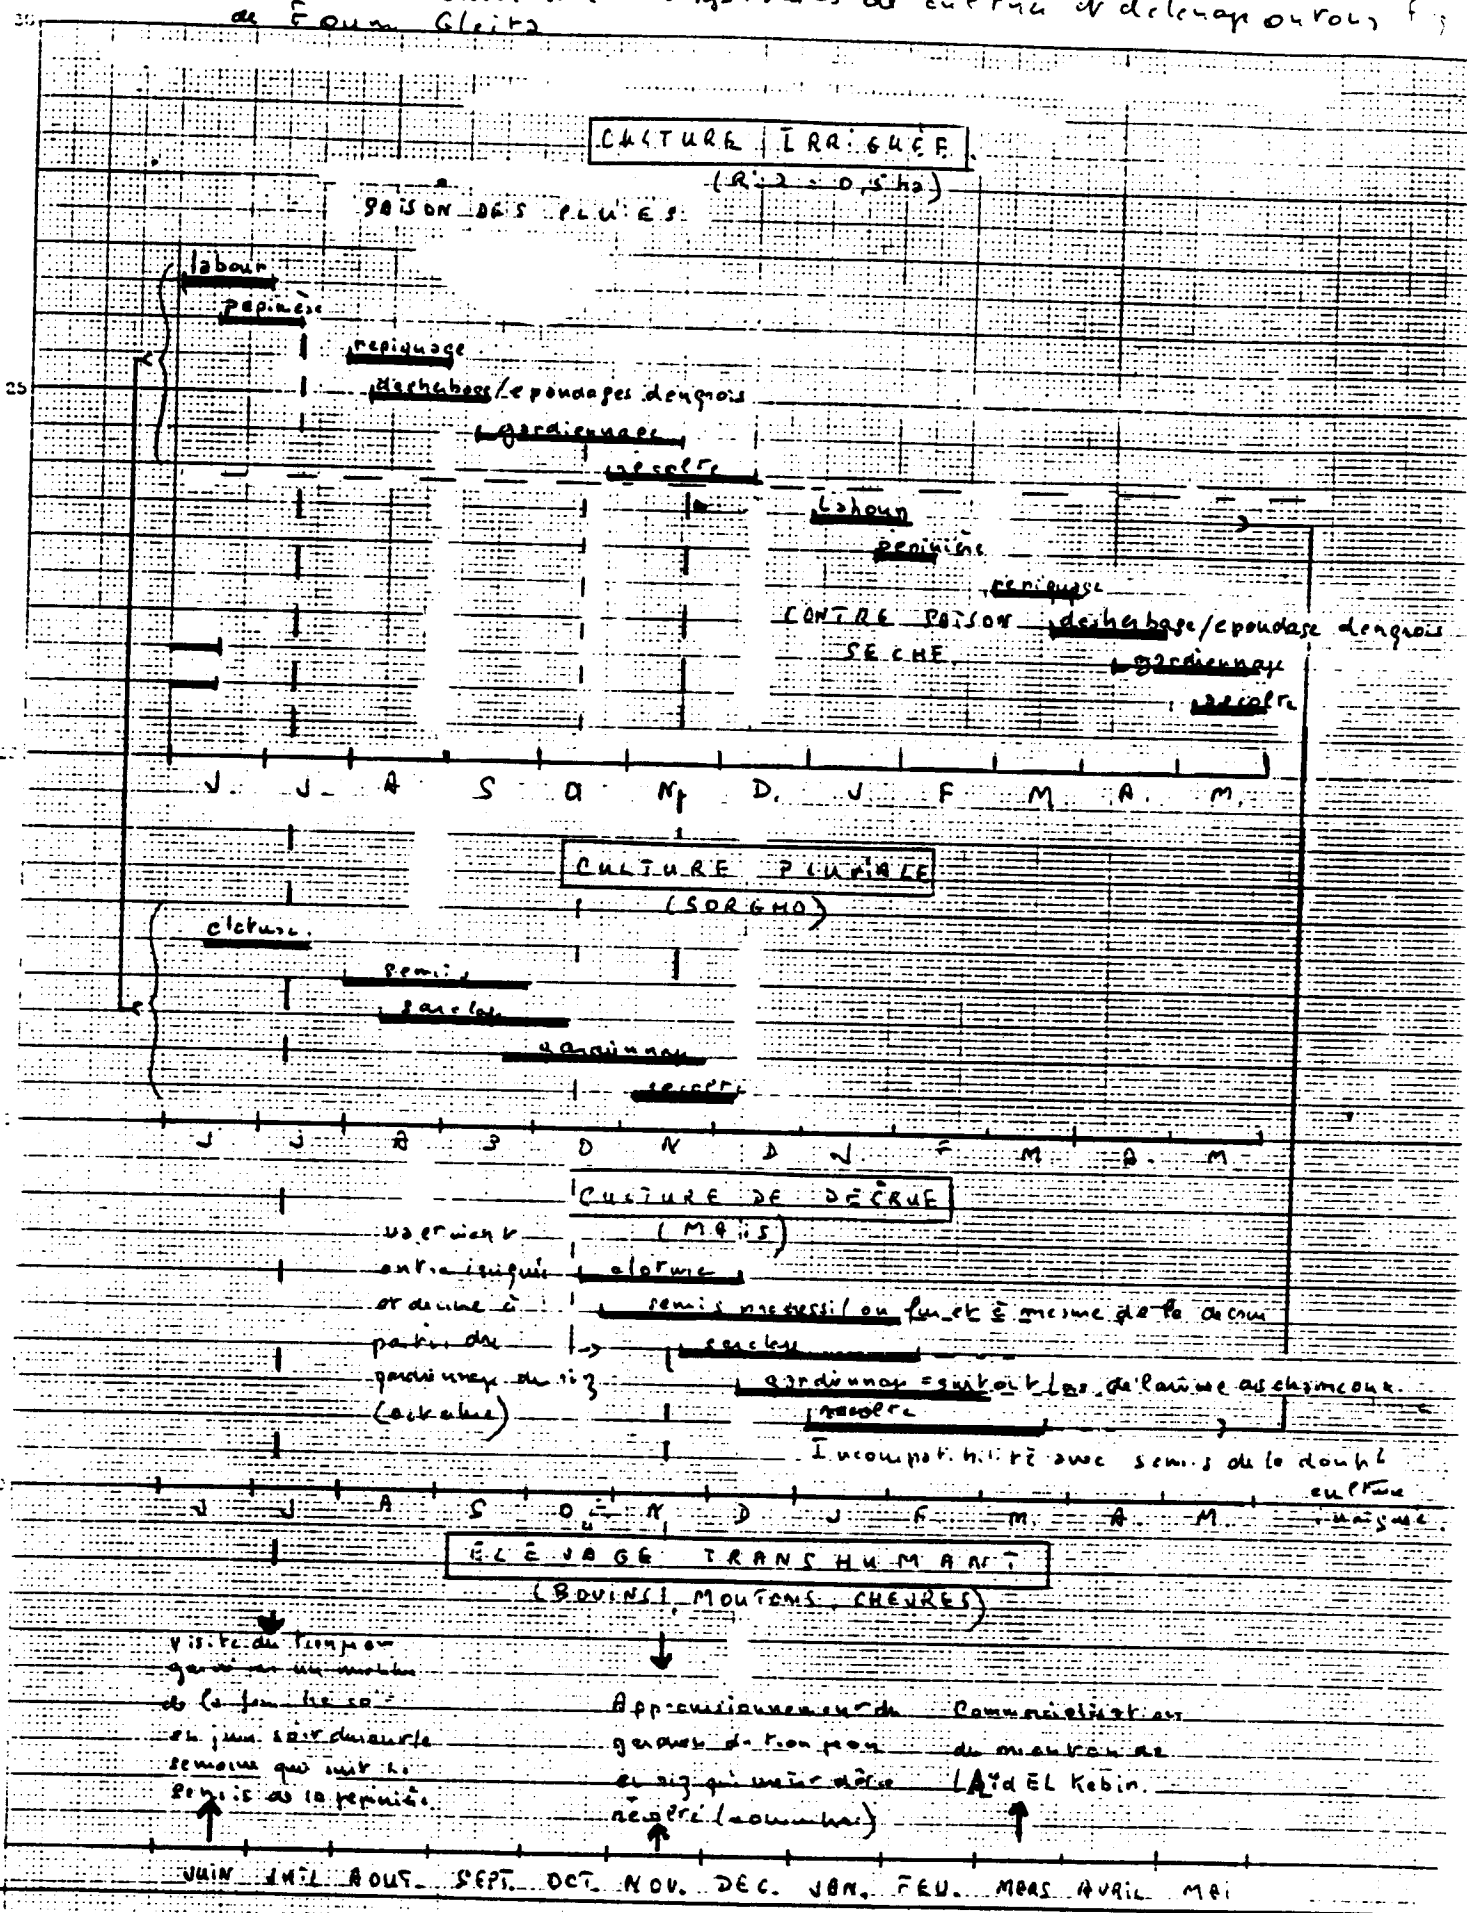 de culture
de Foum Gleita
30
CULTURE IRRIGUÉE
(Riz = 0,5 ha)
SAISON DES PLUIES
labour
pepinière
repiquage
25
desherbage/epandages dengrais
gardiennage
recolte
Labour
pepinière
repiquage
CONTRE SAISON desherbage/epandage dengrais
SECHE gardiennage
recolte
J. J. A S O N D. J F M A. M.
CULTURE PLUVIALE
(SORGHO)
cloture
semis
sarclage
gardiennage
recolte
J J A S O N D J. F M A. M
CULTURE DE DÉCRUE
(MAïS)
entre irriguée cloture
et decrue à semis progressif au fur et à mesure de la decrue
partir du sarclage
gardiennage du riz gardiennage surtout
(octobre) recolte
Incompatibilité avec semis de la double
culture
irriguée.
J J A S O N D J F M. A. M.
ÉLEVAGE TRANSHUMANT
(BOVINS, MOUTONS, CHEVRES)
visite du troupeau
gardé par un membre
de la famille soit
en juin soit durant la
semaine qui suit le
semis de la pepinière.
Approvisionnement du
gardien du troupeau
en riz qui vient d'être
récolté (novembre)
Commercialisation
de mouton de
L'Aïd EL Kebir.
JUIN JUIL AOUT. SEPT. OCT. NOV. DEC. JAN. FEV. MARS AVRIL MAI